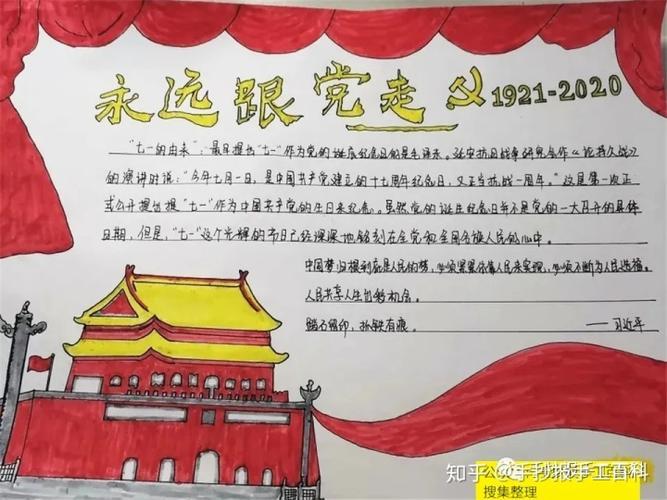 永远跟党走 1921-2020
"七一的由来"：最早提出"七一"作为党的诞辰纪念日的是毛泽东。延安抗日战争研究会作《论持久战》
的演讲时说："今年七月一日，是中国共产党建立的十七周年纪念日，又正当抗战一周年。"这是第一次正
式公开提出提"七一"作为中国共产党的生日来纪念。虽然党的诞生纪念日并不是党的一大召开的具体
日期，但是，"七一"这个光辉的节日已经深深地铭刻在全党和全国各族人民的心中。
中国梦归根到底是人民的梦，必须紧紧依靠人民来实现，必须不断为人民造福。
人民共享人生出彩机会。
踏石留印，抓铁有痕。 ——习近平
知乎 @手抄报手工百科
搜集整理